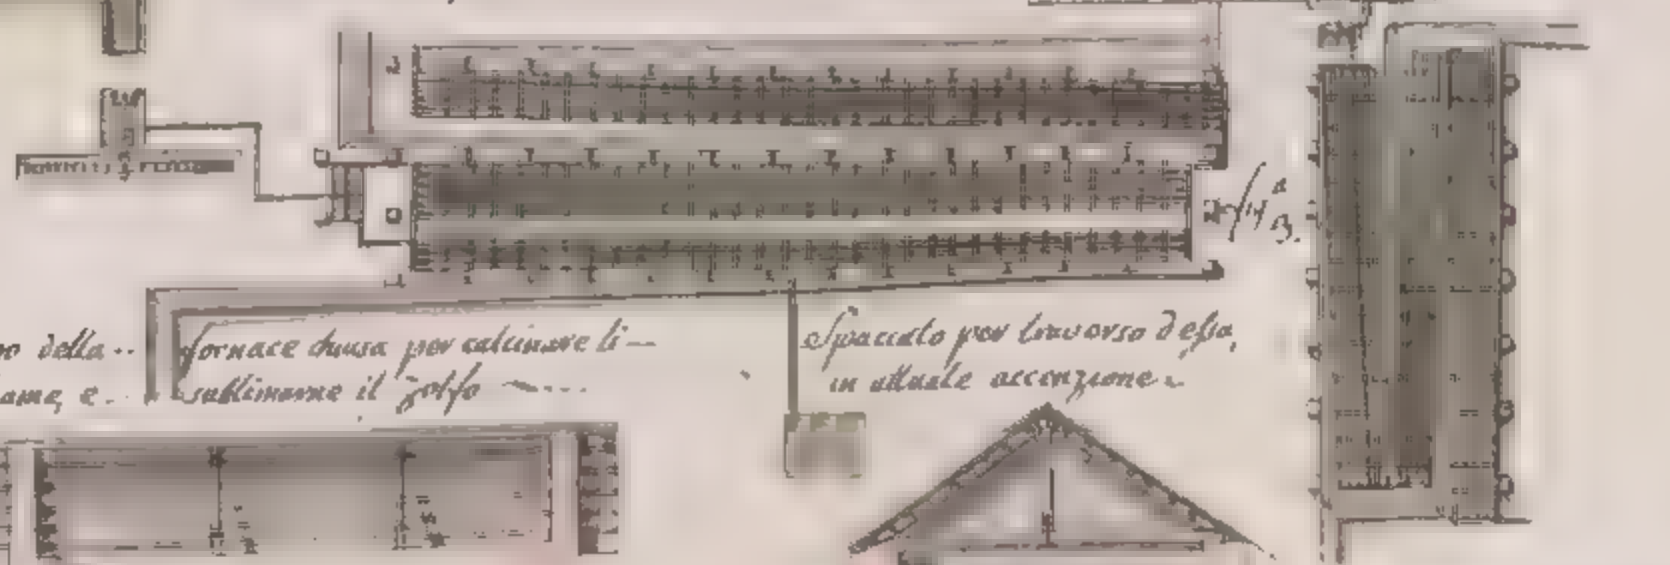 della
fornace chiusa per calcinare li—
sublimarne il zolfo
Spaccato per traverso d'essa,
in attuale accenzione